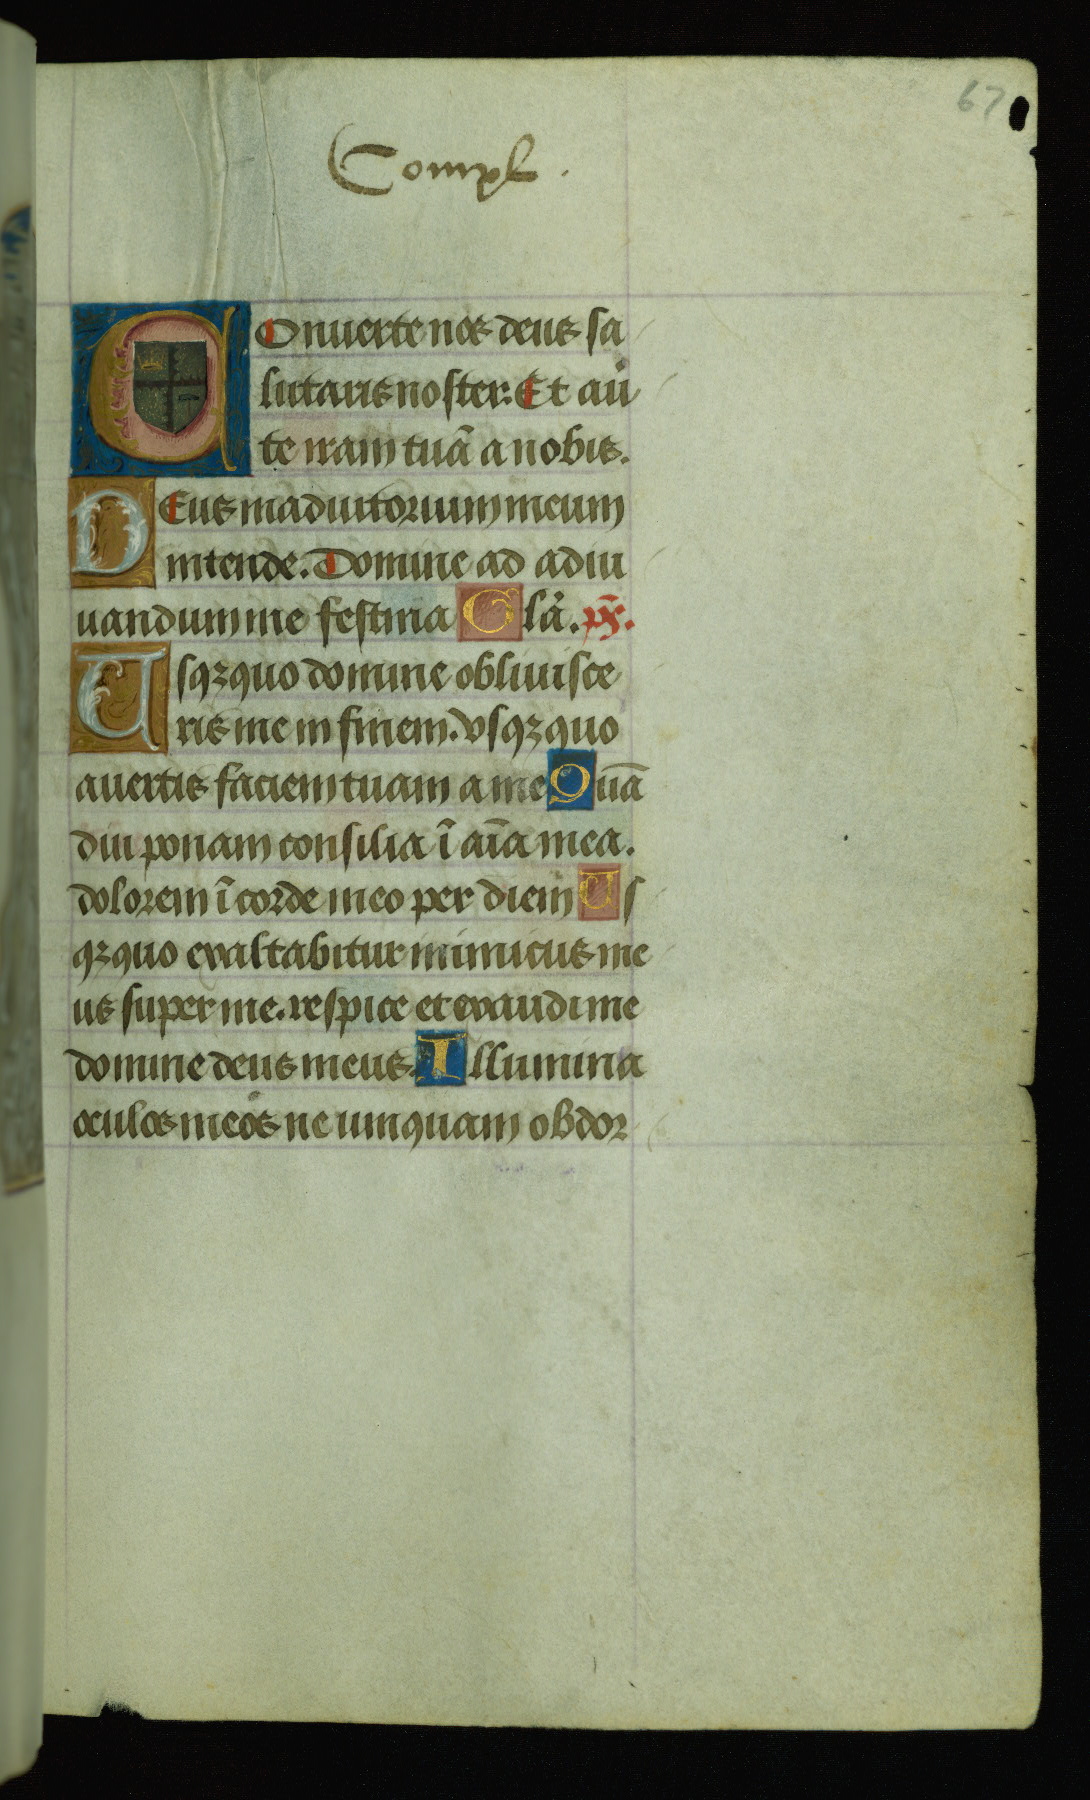 67
Compl.
Conuerte nos deus sa
lutaris noster. Et au̅
te iram tuā a nobis.
Deus in adiutorium meum
intende. Domine ad adiu
uandum me festina Glā. ps̄.
Usqꝫquo domine obliuisce
ris me in finem. vsqꝫ quo
auertis faciem tuam a me Quā
diu ponam consilia ī aīa mea.
dolorem ī corde meo per diem Us
qꝫ quo exaltabitur inimicus me
us super me. respice et exaudi me
domine deus meus. Illumina
oculos meos ne umquam obdor